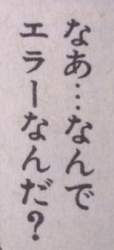 なあ…なんで
エラーなんだ？